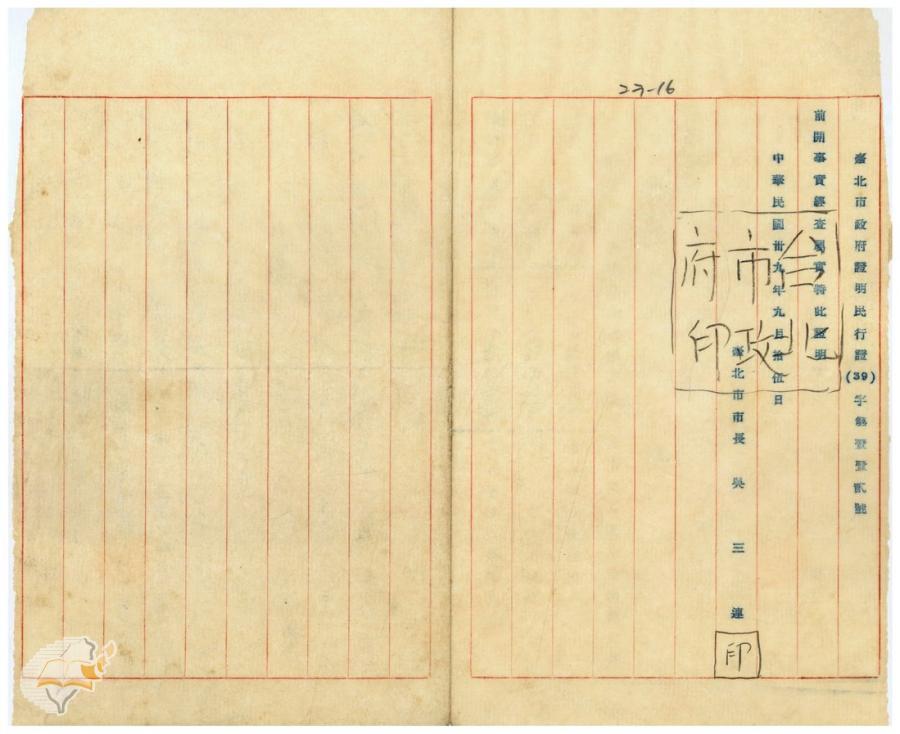 23-16
臺北市政府證明民行證(39)字第壹壹貳號
前開事實經查屬實特此證明
中華民國卅九年九月拾伍日
臺北市市長 吳三連
印
台北
市政
府印